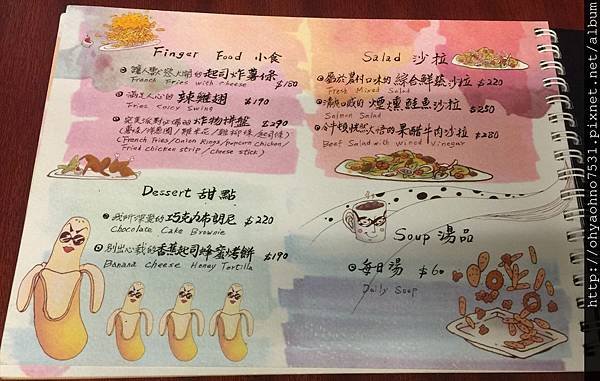 Finger Food 小食
讓人獸慾大開的起司炸薯條 $150
French Fries with cheese
滿足人心的 辣雞翅 $190
Fries Spicy Swing
炸物拼盤 $290
(薯條/洋蔥圈/雞米花/雞柳條/起司條)
(French Fries/Onion Rings/popcorn chicken/
Fried chicken strip/cheese stick)
Salad 沙拉
屬於農村口味的綜合鮮蔬沙拉 $220
Fresh Mixed Salad
煙燻鮭魚沙拉 $250
Salmon Salad
果醋牛肉沙拉 $280
Beef Salad with Wined Vinegar
Dessert 甜點
我所深愛的巧克力布朗尼 $220
Chocolate Cake Brownie
別出心裁的香蕉起司蜂蜜烤餅 $190
Banana cheese Honey Tortilla
Soup 湯品
每日湯 $60
Daily Soup
http://ohyaohno7531.pixnet.net/album